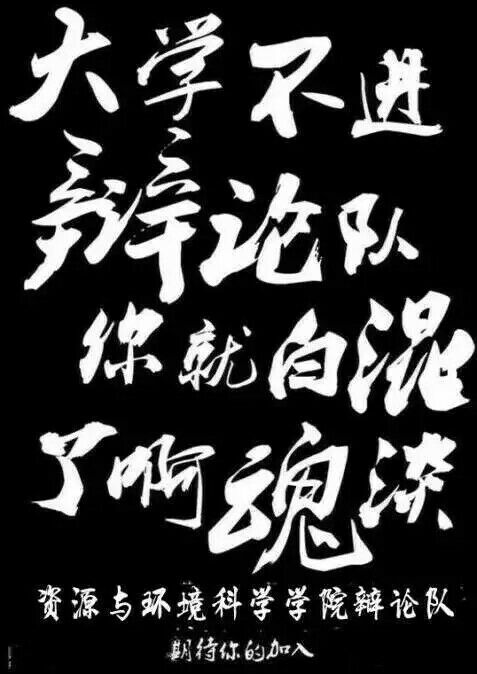 大学不进
辩论队
你就白混
了啊魂淡
资源与环境科学学院辩论队
期待你的加入